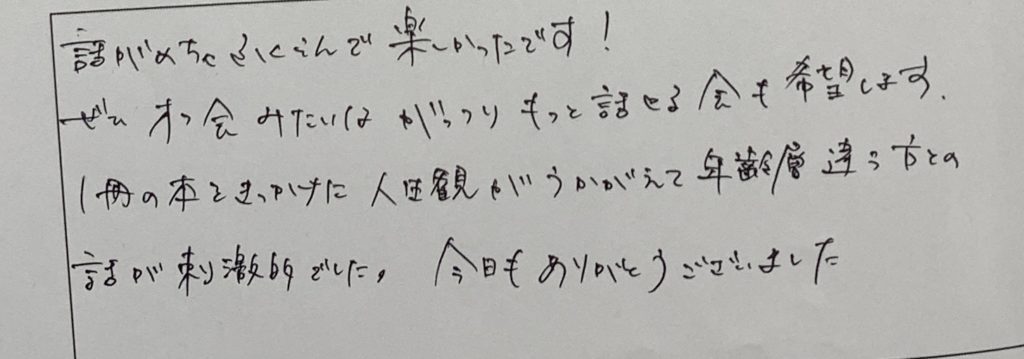 話がめちゃふくらんで楽しかったです!
ぜひオフ会みたいな がっつりもっと話せる会も希望します.
1冊の本をきっかけに人生観がうかがえて年齢層違う方との
話が刺激的でした, 今日もありがとうございました